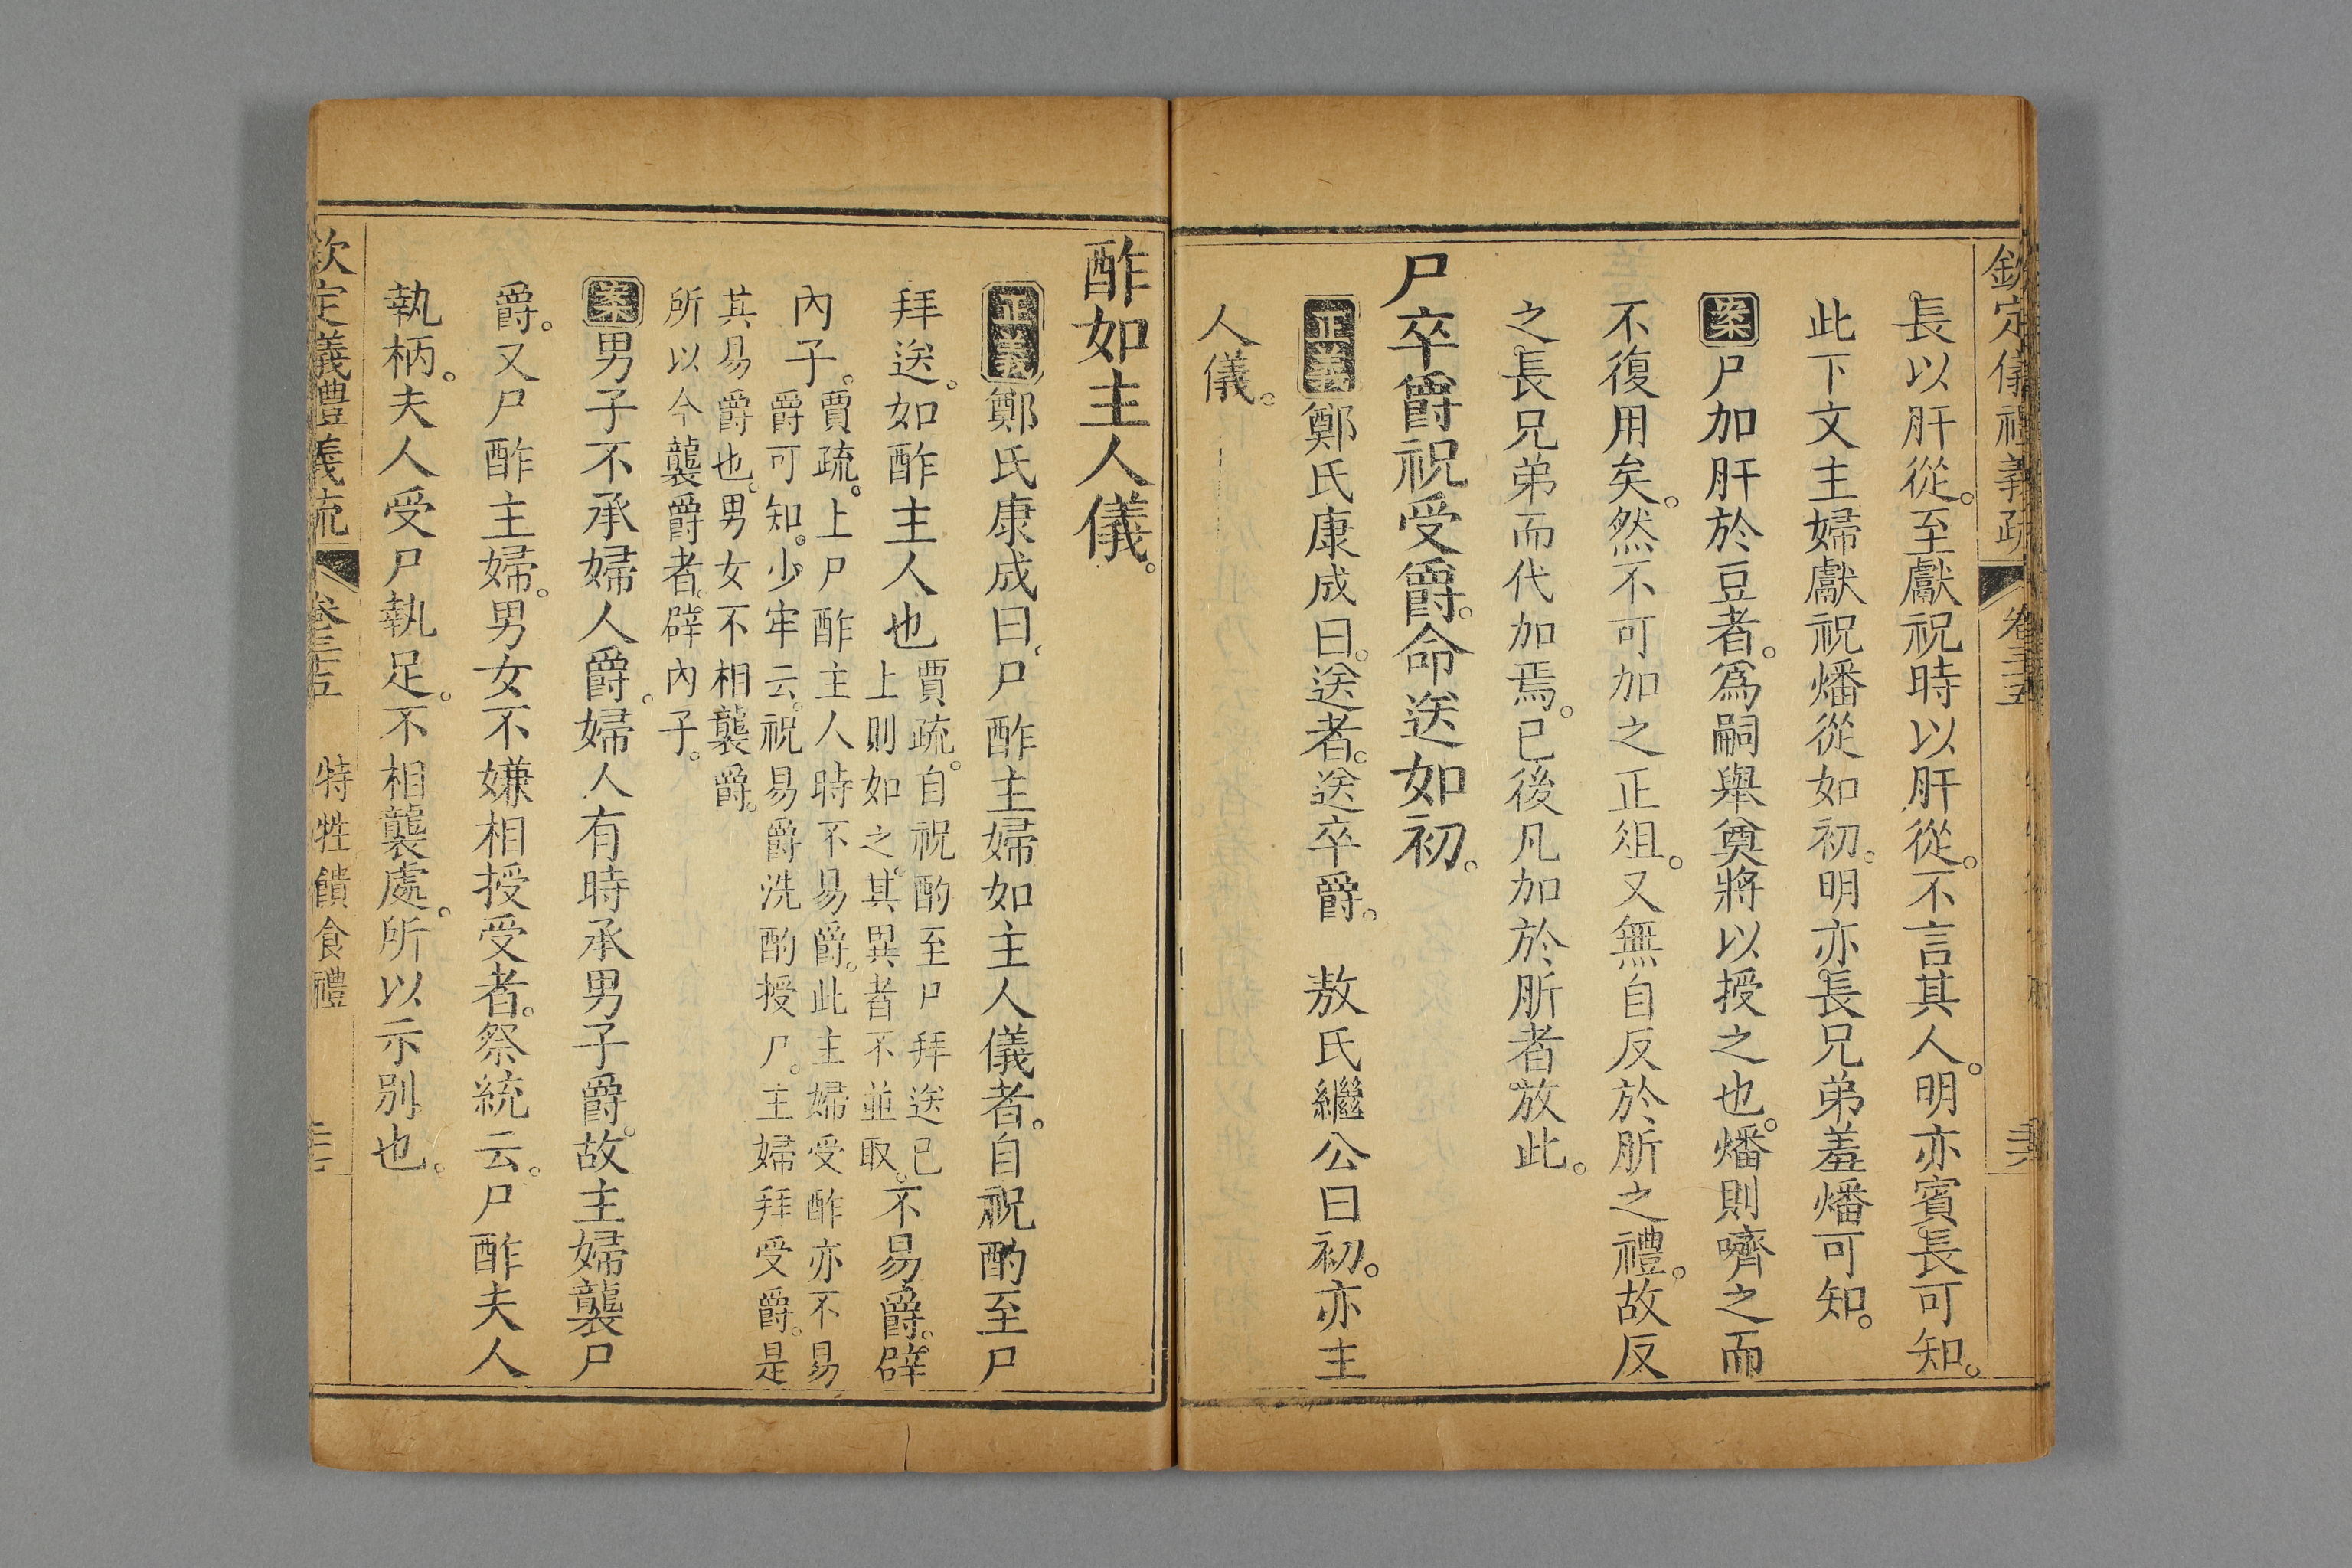 欽定儀禮義疏 卷三十五
長以肝從。至獻祝時以肝從。不言其人。明亦賓長可知。
此下文主婦獻祝燔從如初。明亦長兄弟羞燔可知。
案尸加肝於豆者。爲嗣舉奠將以授之也。燔則嚌之而
不復用矣。然不可加之正俎。又無自反於肵之禮。故反
之長兄弟而代加焉。已後凡加於肵者放此。
尸卒爵祝受爵。命送如初。
正義鄭氏康成曰。送者。送卒爵。 敖氏繼公曰初。亦主
人儀。
酢如主人儀。
正義鄭氏康成曰、尸酢主婦如主人儀者。自祝酌至尸
拜送。如酢主人也
賈疏。自祝酌至尸拜送已
上則如之。其異者不並取。
不易爵。辟
內子。
賈疏。上尸酢主人時不易爵。此主婦受酢亦不易
爵可知。少牢云。祝易爵洗酌授尸。主婦拜受爵。是
其易爵也。男女不相襲爵。
所以今襲爵者。辟內子。
案男子不承婦人爵。婦人有時承男子爵。故主婦襲尸
爵。又尸酢主婦。男女不嫌相授受者。祭統云。尸酢夫人
執柄。夫人受尸執足。不相襲處。所以示別也。
欽定義禮義疏 卷三十五 特牲饋食禮